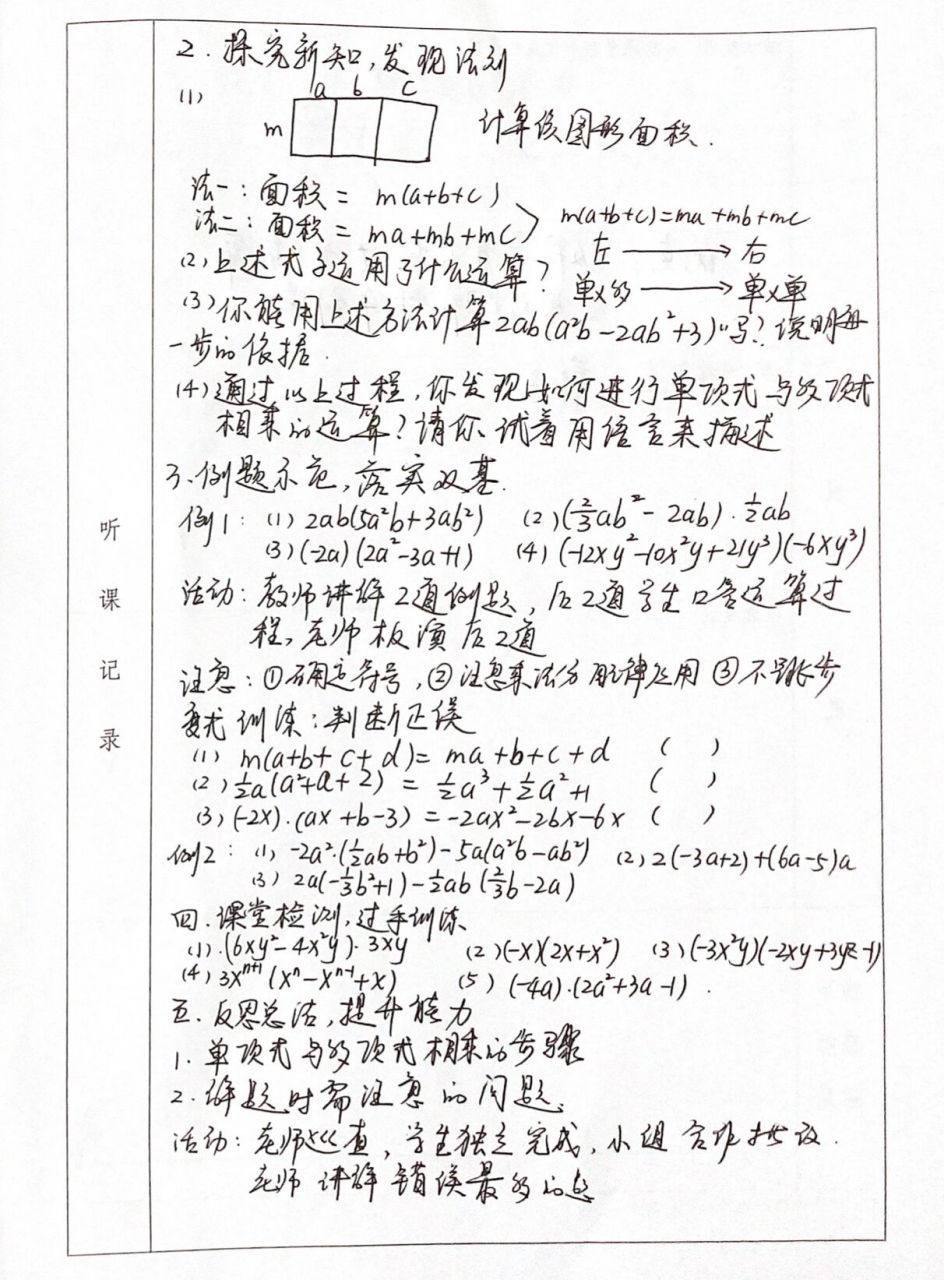 听课记录
2.探究新知,发现法则
(1) a b c
m 计算该图形面积.
法一:面积= m(a+b+c)
法二:面积= ma+mb+mc
m(a+b+c)=ma+mb+mc
左 → 右
(2)上述式子运用了什么运算?
单×多 → 单×单
(3)你能用上述方法计算2ab(a²b-2ab²+3)吗?说明每
一步的依据.
(4)通过以上过程,你发现如何进行单项式与多项式
相乘的运算?请你试着用语言来描述
三.例题示范,落实双基.
例1: (1) 2ab(5a²b+3ab²) (2)(⅔ab²-2ab)·½ab
(3)(-2a)(2a²-3a+1) (4)(-12xy²-10x²y+21y³)(-6xy³)
活动:教师讲解2道例题,后2道学生口答运算过
程,老师板演后2道
注意:①确定符号,②注意乘法分配律运用③不跳步
变式训练:判断正误
(1) m(a+b+c+d)= ma+b+c+d ( )
(2)½a(a²+a+2) = ½a³+½a²+1 ( )
(3)(-2x).(ax+b-3)=-2ax²-2bx-6x ( )
例2: (1) -2a²·(½ab+b²)-5a(a²b-ab²) (2)2(-3a+2)+(6a-5)a
(3) 2a(-⅓b²+1)-½ab(⅔b-2a)
四.课堂检测,过手训练
(1).(6xy²-4x²y)·3xy (2)(-x)(2x+x²) (3)(-3x²y)(-2xy+3yz-1)
(4)3xⁿ⁺¹(xⁿ-xⁿ⁻¹+x) (5) (-4a).(2a²+3a-1).
五.反思总法,提升能力
1.单项式与多项式相乘的步骤
2.解题时需注意的问题.
活动:老师巡查,学生独立完成,小组合作拱议.
老师讲解错误最多的题